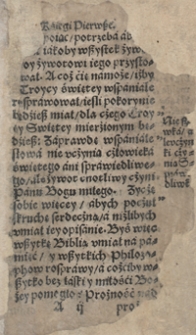 Księgi Pierwsze.
poiąc / potrzeba ab
iakoby wszystek żyw
y żywotowi iego przysto
wał. A coż ci pomoże / iżby
Troycy świętey wspaniale
rosprawował / iesli pokory nie
będziesz miał / dla czego Troy
cy Swiętey mierzionym bę
dziesz: Zaprawdę wspaniałe
słowa nie vczynią człowieka
świętego ani sprawiedliwe
go / ale żywot cnotliwy czyni
Panu Bogu miłego: Zyczę
sobie więcey / abych poczuł
skruchę serdeczną / a niżlibych
vmiał iey opisanie. Byś wie
wszytkę Biblią vmiał na pa
mięć / y wszytkich Philozo
phow rosprawy / a cożciby w
szytko bez łaski y miłości Bo
żey pomogło: Prożność nad
A ij
pro